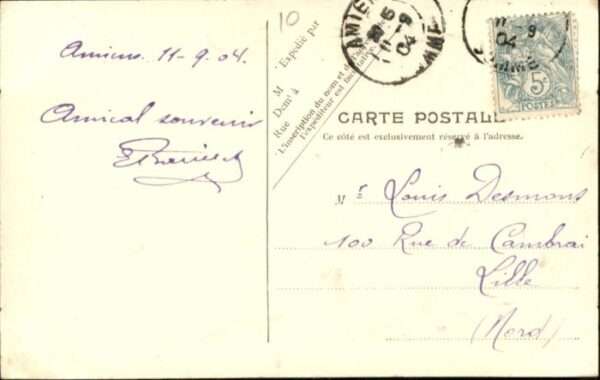 10
Amiens 11-9.04.
Amical souvenir
Expédié par
M
Demt à
Rue
L'inscription du nom et de
l'expéditeur est facultative
AMIENS
11-9
04
SOMME
9
04
SOMME
5c
POSTES
CARTE POSTALE
Ce côté est exclusivement réservé à l'adresse.
Mr Louis Desmons
100 Rue de Cambrai
Lille
(Nord)